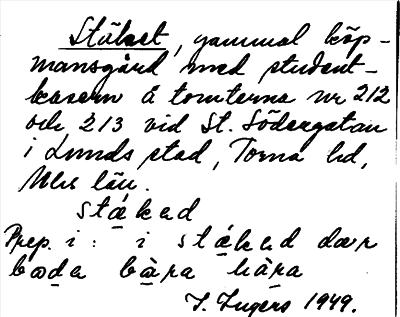 Stäket, gammal köp-
mansgård med student-
kasern å tomterna nr 212
och 213 vid St. Södergatan
i Lunds stad, Torna hd,
Mlhs län.
stäkad
Prep. i: i stäkad dær
bæda bära hära
I. Ingers 1949.